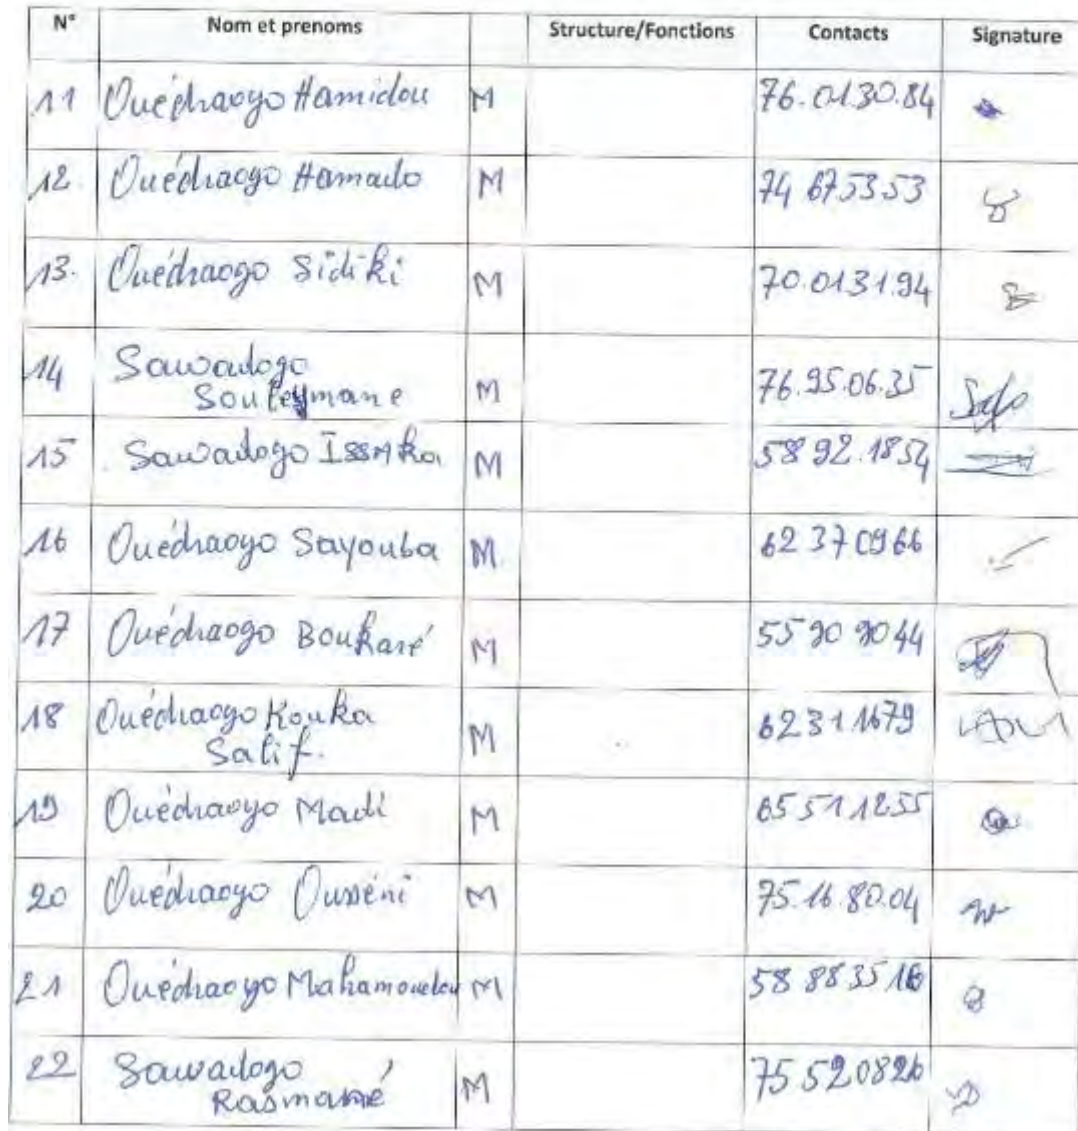 N° Nom et prenoms Structure/Fonctions Contacts Signature
11 Ouédraogo Hamidou M 76.01.30.84
12. Ouédraogo Hamado M 74 67 53 53
13. Ouédraogo Sidiki M 70.01 31.94
14 Sawadogo M 76.95.06.35
Souleymane
15 Sawadogo Issaka M 58 92.18 54
16 Ouédraogo Sayouba M 62 37 09 66
17 Ouédraogo Boukaré M 55 90 90 44
18 Ouédraogo Kouka M 62 31 16 79
Salif.
19 Ouédraogo Madi M 65 51 12 55
20 Ouédraogo Ousséni M 75.16.80.04
21 Ouédraogo Mahamoudou M 58 88 35 16
22 Sawadogo M 75 52 08 26
Rasmané